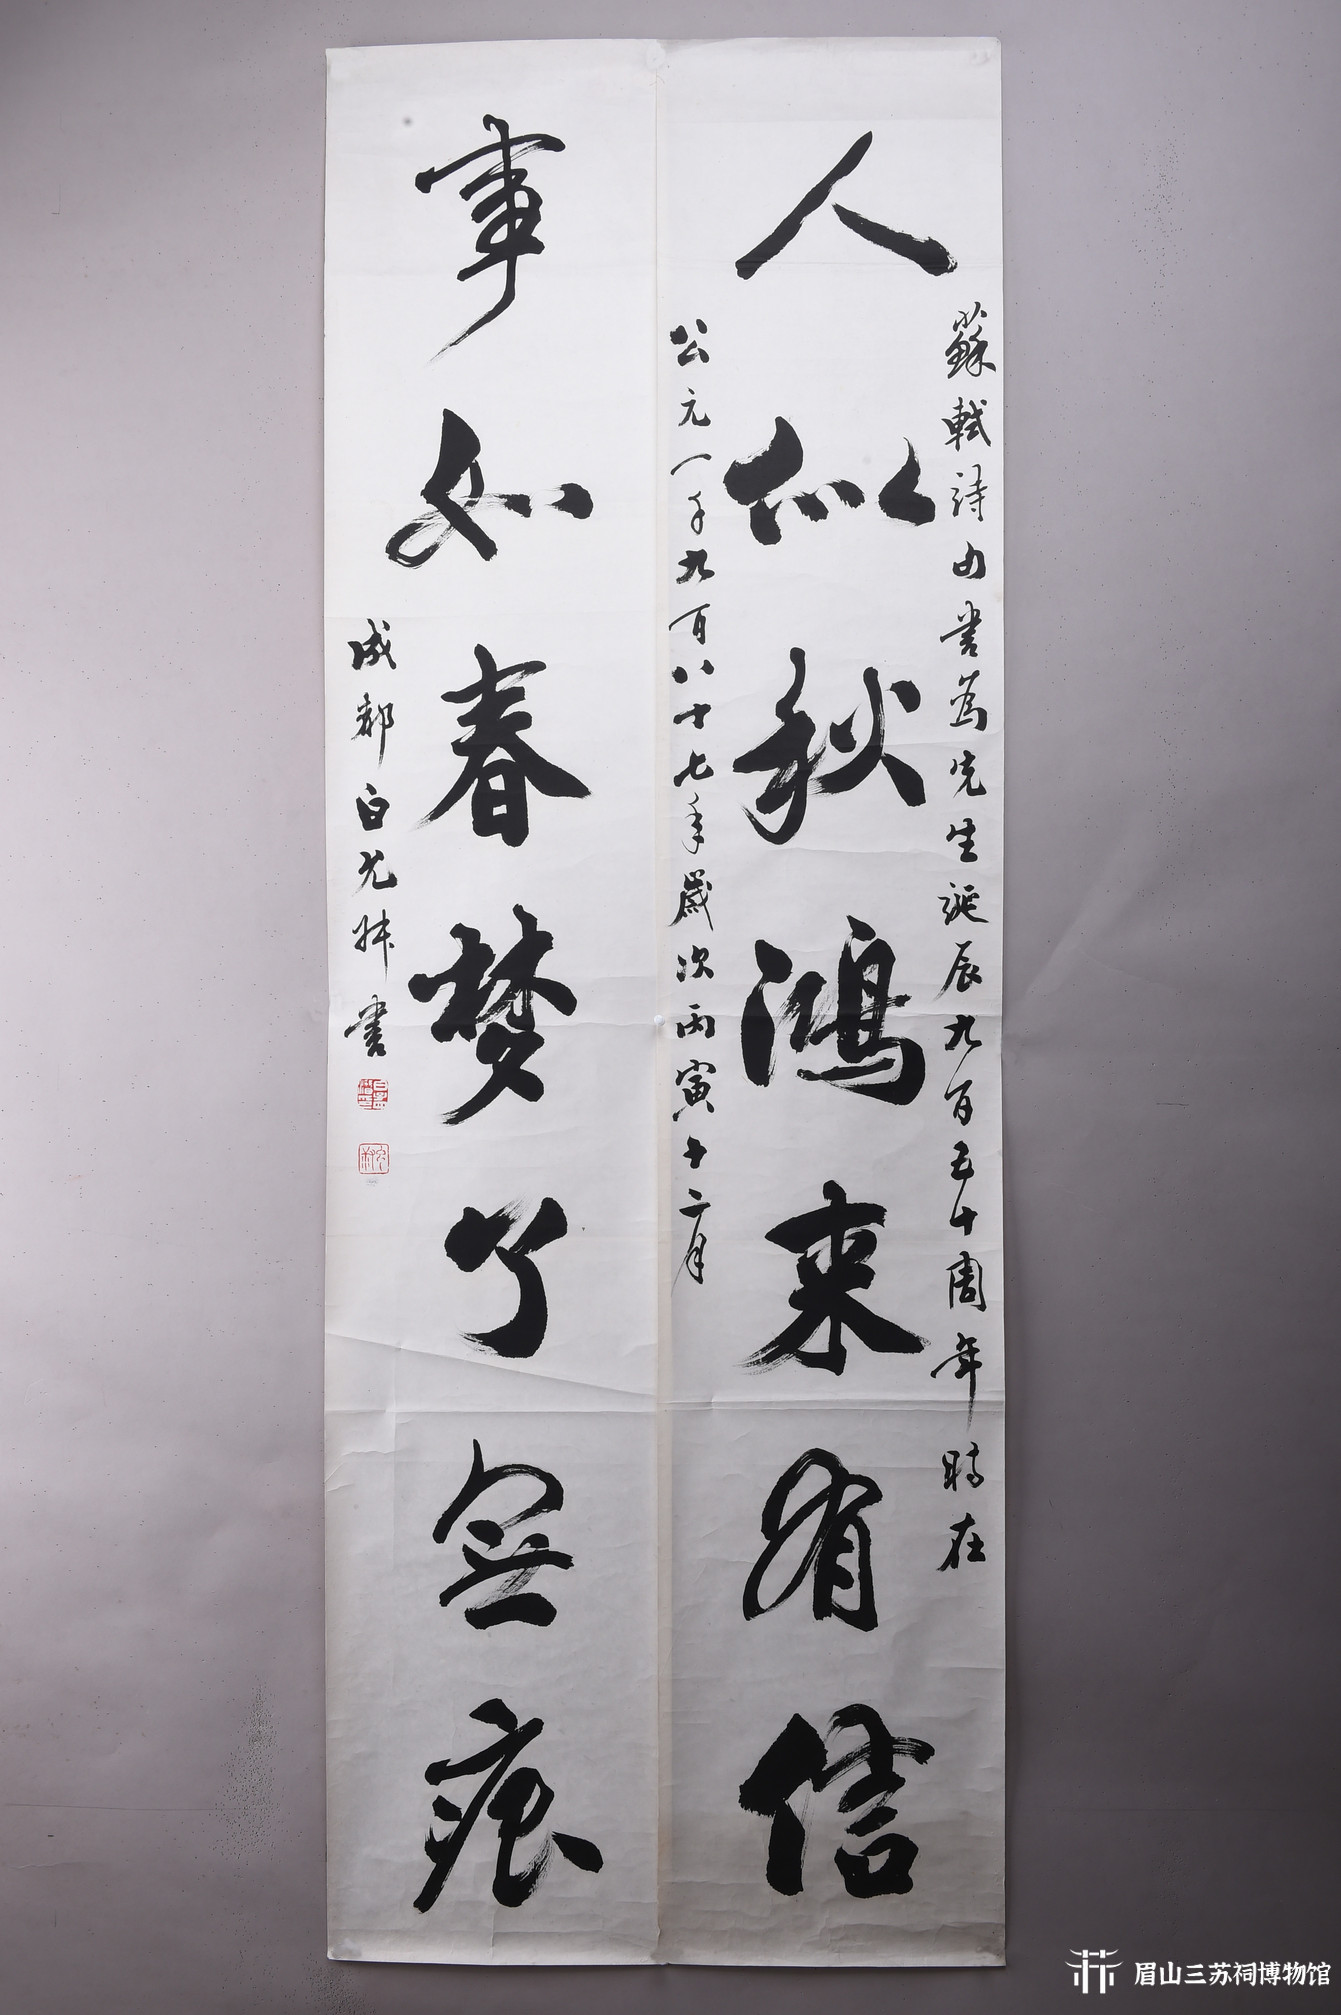 人似秋鴻来有信
蘇軾詩句書為先生誕辰九百五十周年時在
公元一千九百八十七年歲次丙寅十二月
事如春梦了無痕
成都白允叔書
眉山三苏祠博物馆